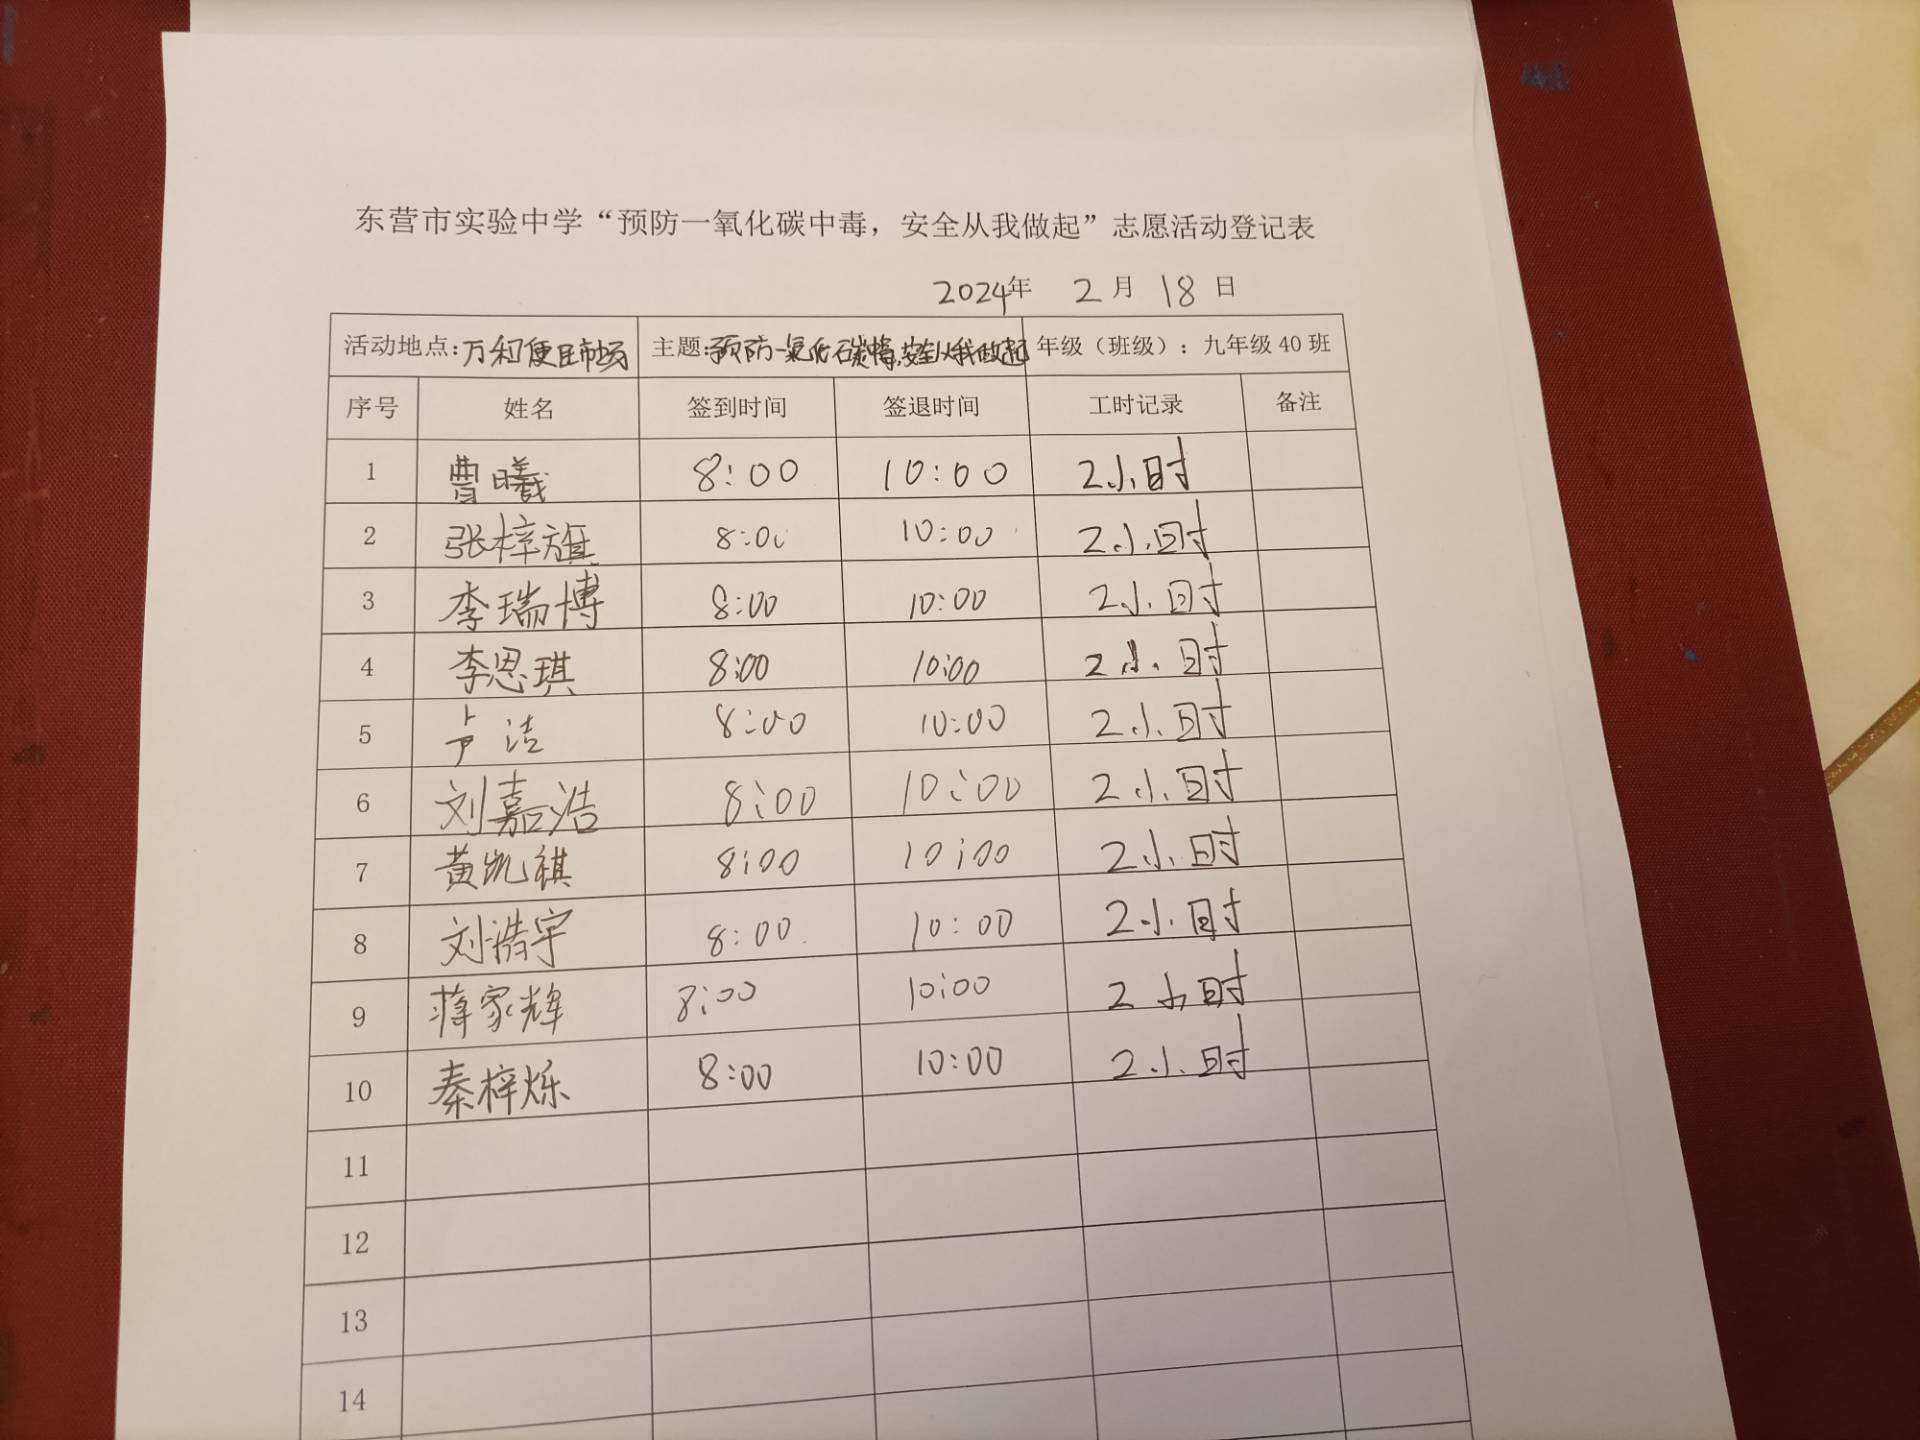 东营市实验中学“预防一氧化碳中毒，安全从我做起”志愿活动登记表
2024年 2月 18日
活动地点：万和便民市场 主题：预防一氧化碳中毒,安全从我做起 年级（班级）：九年级 40 班
序号 姓名 签到时间 签退时间 工时记录 备注
1 曹曦 8:00 10:00 2小时
2 张梓旗 8:00 10:00 2小时
3 李瑞博 8:00 10:00 2小时
4 李恩琪 8:00 10:00 2小时
5 卢洁 8:00 10:00 2小时
6 刘嘉浩 8:00 10:00 2小时
7 黄凯祺 8:00 10:00 2小时
8 刘浩宇 8:00 10:00 2小时
9 蒋家辉 8:00 10:00 2小时
10 秦梓烁 8:00 10:00 2小时
11
12
13
14